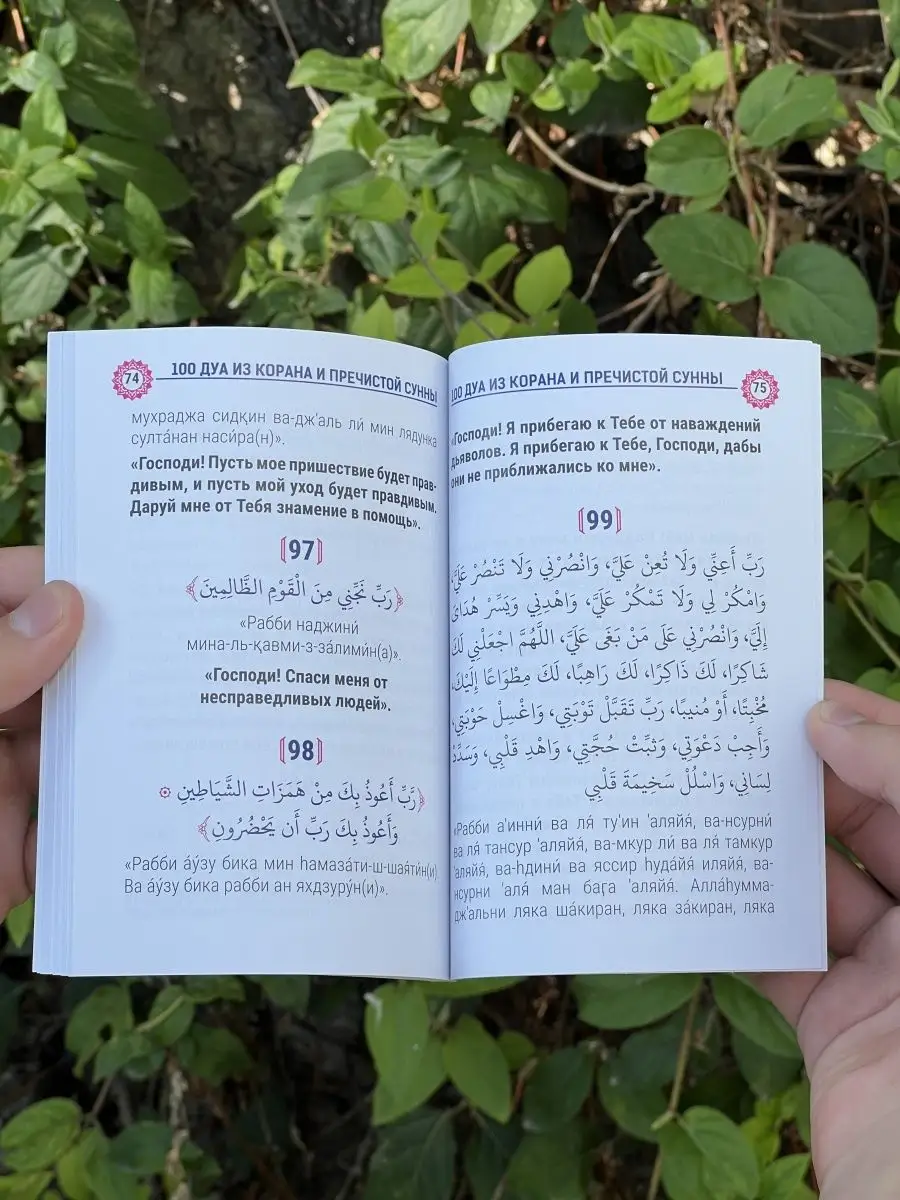 74
100 ДУА ИЗ КОРАНА И ПРЕЧИСТОЙ СУННЫ
мухраджа сидқин ва-дж'аль ли́ мин лядунка
султáнан наси́ра(н)».
«Господи! Пусть мое пришествие будет прав-
дивым, и пусть мой уход будет правдивым.
Даруй мне от Тебя знамение в помощь».
97
﴿رَبِّ نَجِّنِي مِنَ الْقَوْمِ الظَّالِمِينَ﴾
«Рабби наджини́
мина-ль-қавми-з-зáлими́н(а)».
«Господи! Спаси меня от
несправедливых людей».
98
﴿رَّبِّ أَعُوذُ بِكَ مِنْ هَمَزَاتِ الشَّيَاطِينِ ۞
وَأَعُوذُ بِكَ رَبِّ أَن يَحْضُرُونِ﴾
«Рабби áўзу бика мин hамазáти-ш-шаяти́н(и).
Ва áўзу бика рабби ан яхдзурýн(и)».
100 ДУА ИЗ КОРАНА И ПРЕЧИСТОЙ СУННЫ
75
«Господи! Я прибегаю к Тебе от наваждений
дьяволов. Я прибегаю к Тебе, Господи, дабы
они не приближались ко мне».
99
رَبِّ أَعِنِّي وَلَا تُعِنْ عَلَيَّ، وَانْصُرْنِي وَلَا تَنْصُرْ عَلَيَّ،
وَامْكُرْ لِي وَلَا تَمْكُرْ عَلَيَّ، وَاهْدِنِي وَيَسِّرْ هُدَايَ
إِلَيَّ، وَانْصُرْنِي عَلَى مَنْ بَغَى عَلَيَّ، اللَّهُمَّ اجْعَلْنِي لَكَ
شَاكِرًا، لَكَ ذَاكِرًا، لَكَ رَاهِبًا، لَكَ مِطْوَاعًا إِلَيْكَ،
مُخْبِتًا، أَوْ مُنِيبًا، رَبِّ تَقَبَّلْ تَوْبَتِي، وَاغْسِلْ حَوْبَتِي،
وَأَجِبْ دَعْوَتِي، وَثَبِّتْ حُجَّتِي، وَاهْدِ قَلْبِي، وَسَدِّدْ
لِسَانِي، وَاسْلُلْ سَخِيمَةَ قَلْبِي
«Рабби а'инни́ ва ля́ ту'ин 'аляйя́, ва-нсурни́
ва ля́ тансур 'аляйя́, ва-мкур ли́ ва ля́ тамкур
'аляйя́, ва-hдини́ ва яссир hудáйя́ иляйя́, ва-
нсурни 'аля́ ман баға 'аляйя́. Аллáhумма-
дж'альни ляка шáкиран, ляка зáкиран, ляка